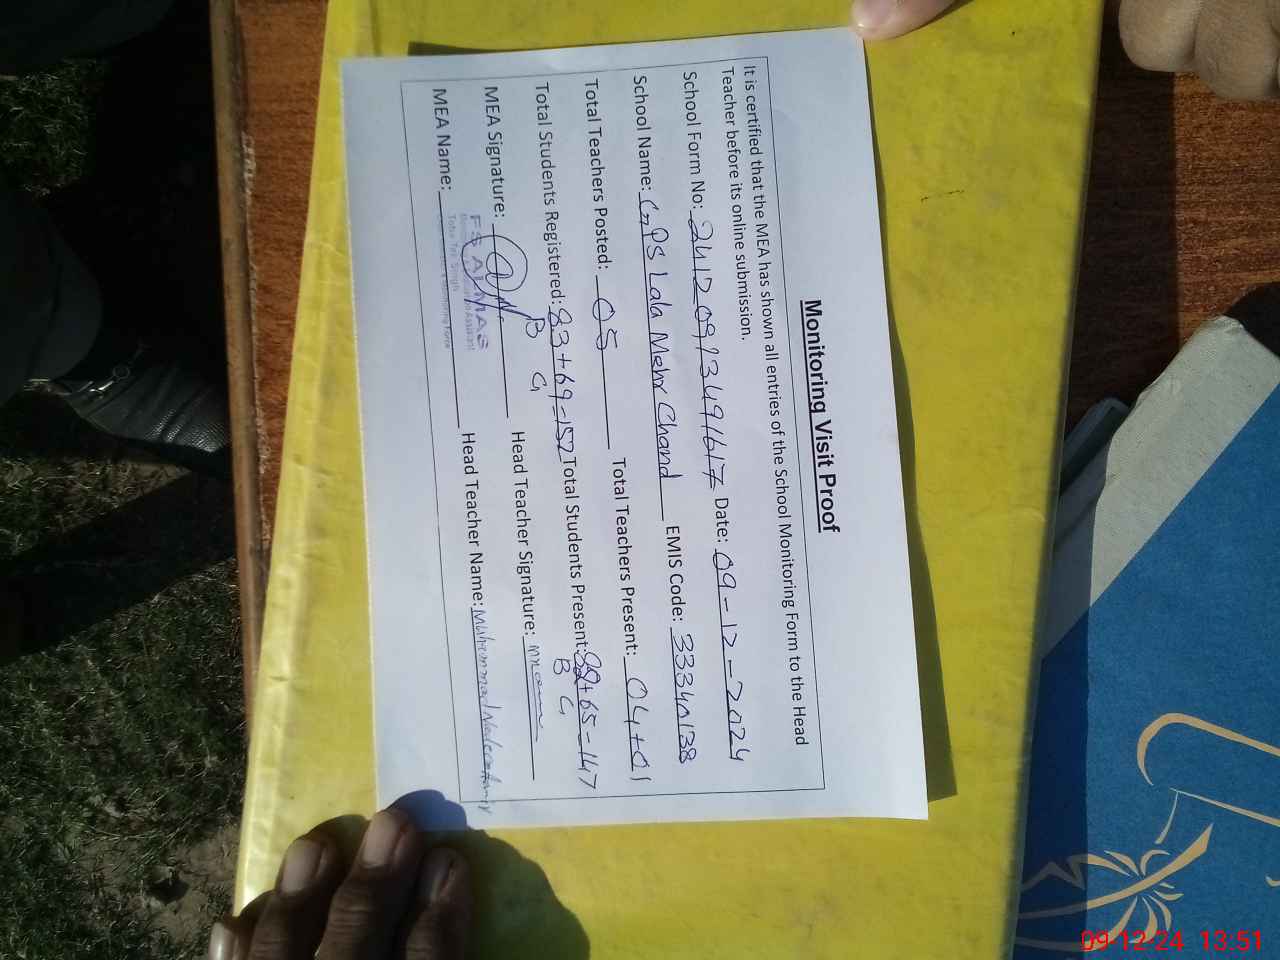 Monitoring Visit Proof
It is certified that the MEA has shown all entries of the School Monitoring Form to the Head
Teacher before its online submission.
School Form No: 24120913491617 Date: 09-12-2024
School Name: GPS Lala Mehr Chand EMIS Code: 33340138
Total Teachers Posted: 05 Total Teachers Present: 04+01
Total Students Registered: 83+69=152 Total Students Present: +65=147
B G B G
MEA Signature: Head Teacher Signature:
MEA Name: Head Teacher Name: Muhammad
Toba Tek Singh
09-12-24 13:51